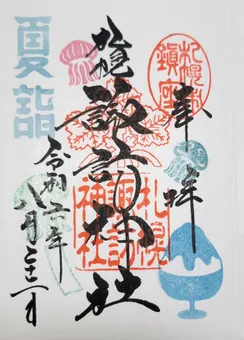 奉拝
札幌市
鎮座
札幌
諏訪神社
札幌
諏訪
神社
夏詣
令和 年
八月